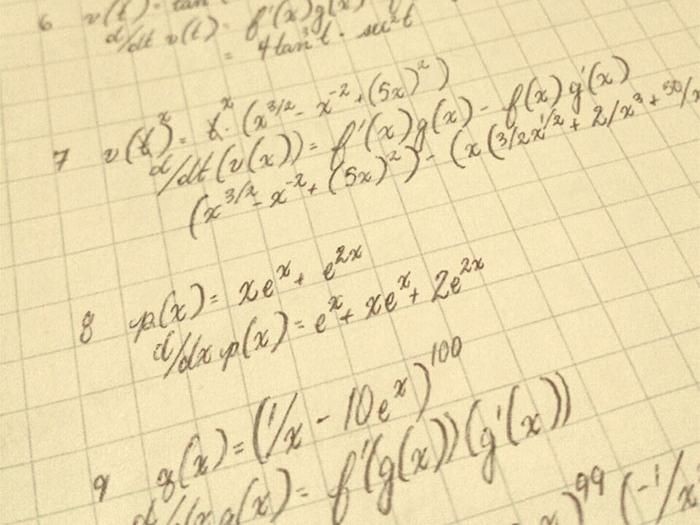 6 v(t) = tan
d/dt v(t) = f'(x)g(x)
= 4tan³t · sec²t
7 v(x) = x · (x^3/2 - x^-2 + (5x)^2)
d/dt(v(x)) = f'(x)g(x) - f(x)g'(x)
(x^3/2 - x^-2 + (5x)^2) - (x(3/2x^1/2 + 2/x^3 + 50/x
8 p(x) = xe^x + e^2x
d/dx p(x) = e^x + xe^x + 2e^2x
9 q(x) = (1/x - 10e^x)^100
d/dx q(x) = f'(g(x))(g'(x))
x)^99 (-1/x